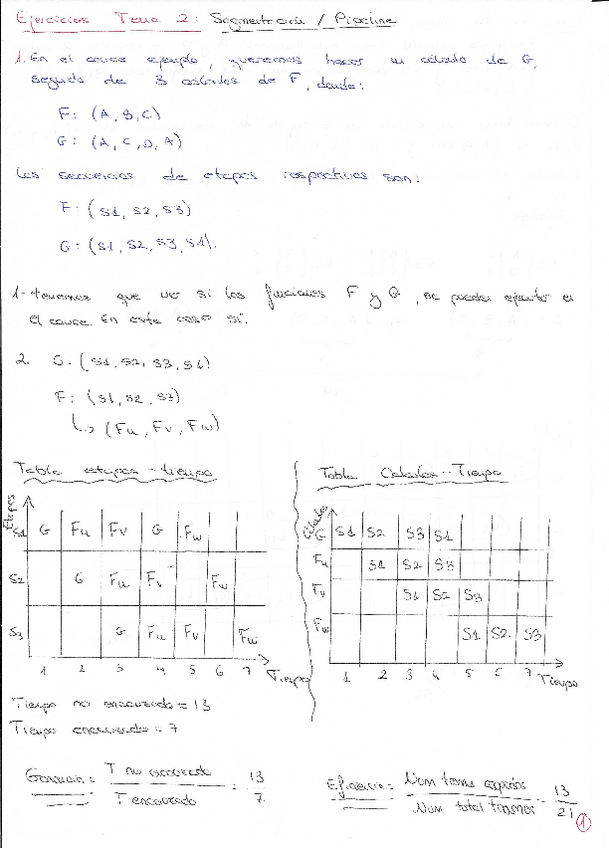 Ejercicios Tema 2: Segmentación / Pipeline
1. En el cauce ejemplo, queremos hacer un cálculo de G,
seguido de 3 cálculos de F, donde:
F: (A, B, C)
G: (A, C, D, A)
Las secuencias de etapas respectivas son:
F: (S1, S2, S3)
G: (S1, S2, S3, S1).
1- tenemos que ver si las funciones F y G, se pueden ejecutar en
el cauce. En este caso sí.
2. G: (S1, S2, S3, S1)
F: (S1, S2, S3)
↳ (Fu, Fv, Fw)
Tabla etapas-tiempo
Etapas
S1 G Fu Fv G Fw
S2 G Fu Fv Fw
S3 G Fu Fv Fw
1 2 3 4 5 6 7 Tiempo
Tabla Cálculos-Tiempo
Cálculos
G S1 S2 S3 S1
Fu S1 S2 S3
Fv S1 S2 S3
Fw S1 S2 S3
1 2 3 4 5 6 7 Tiempo
Tiempo no encauzado = 13
Tiempo encauzado = 7
Ganancia = T no encauzado / T encauzado = 13 / 7
Eficiencia = Num tramos / Num total tramos = 13 / 21
1